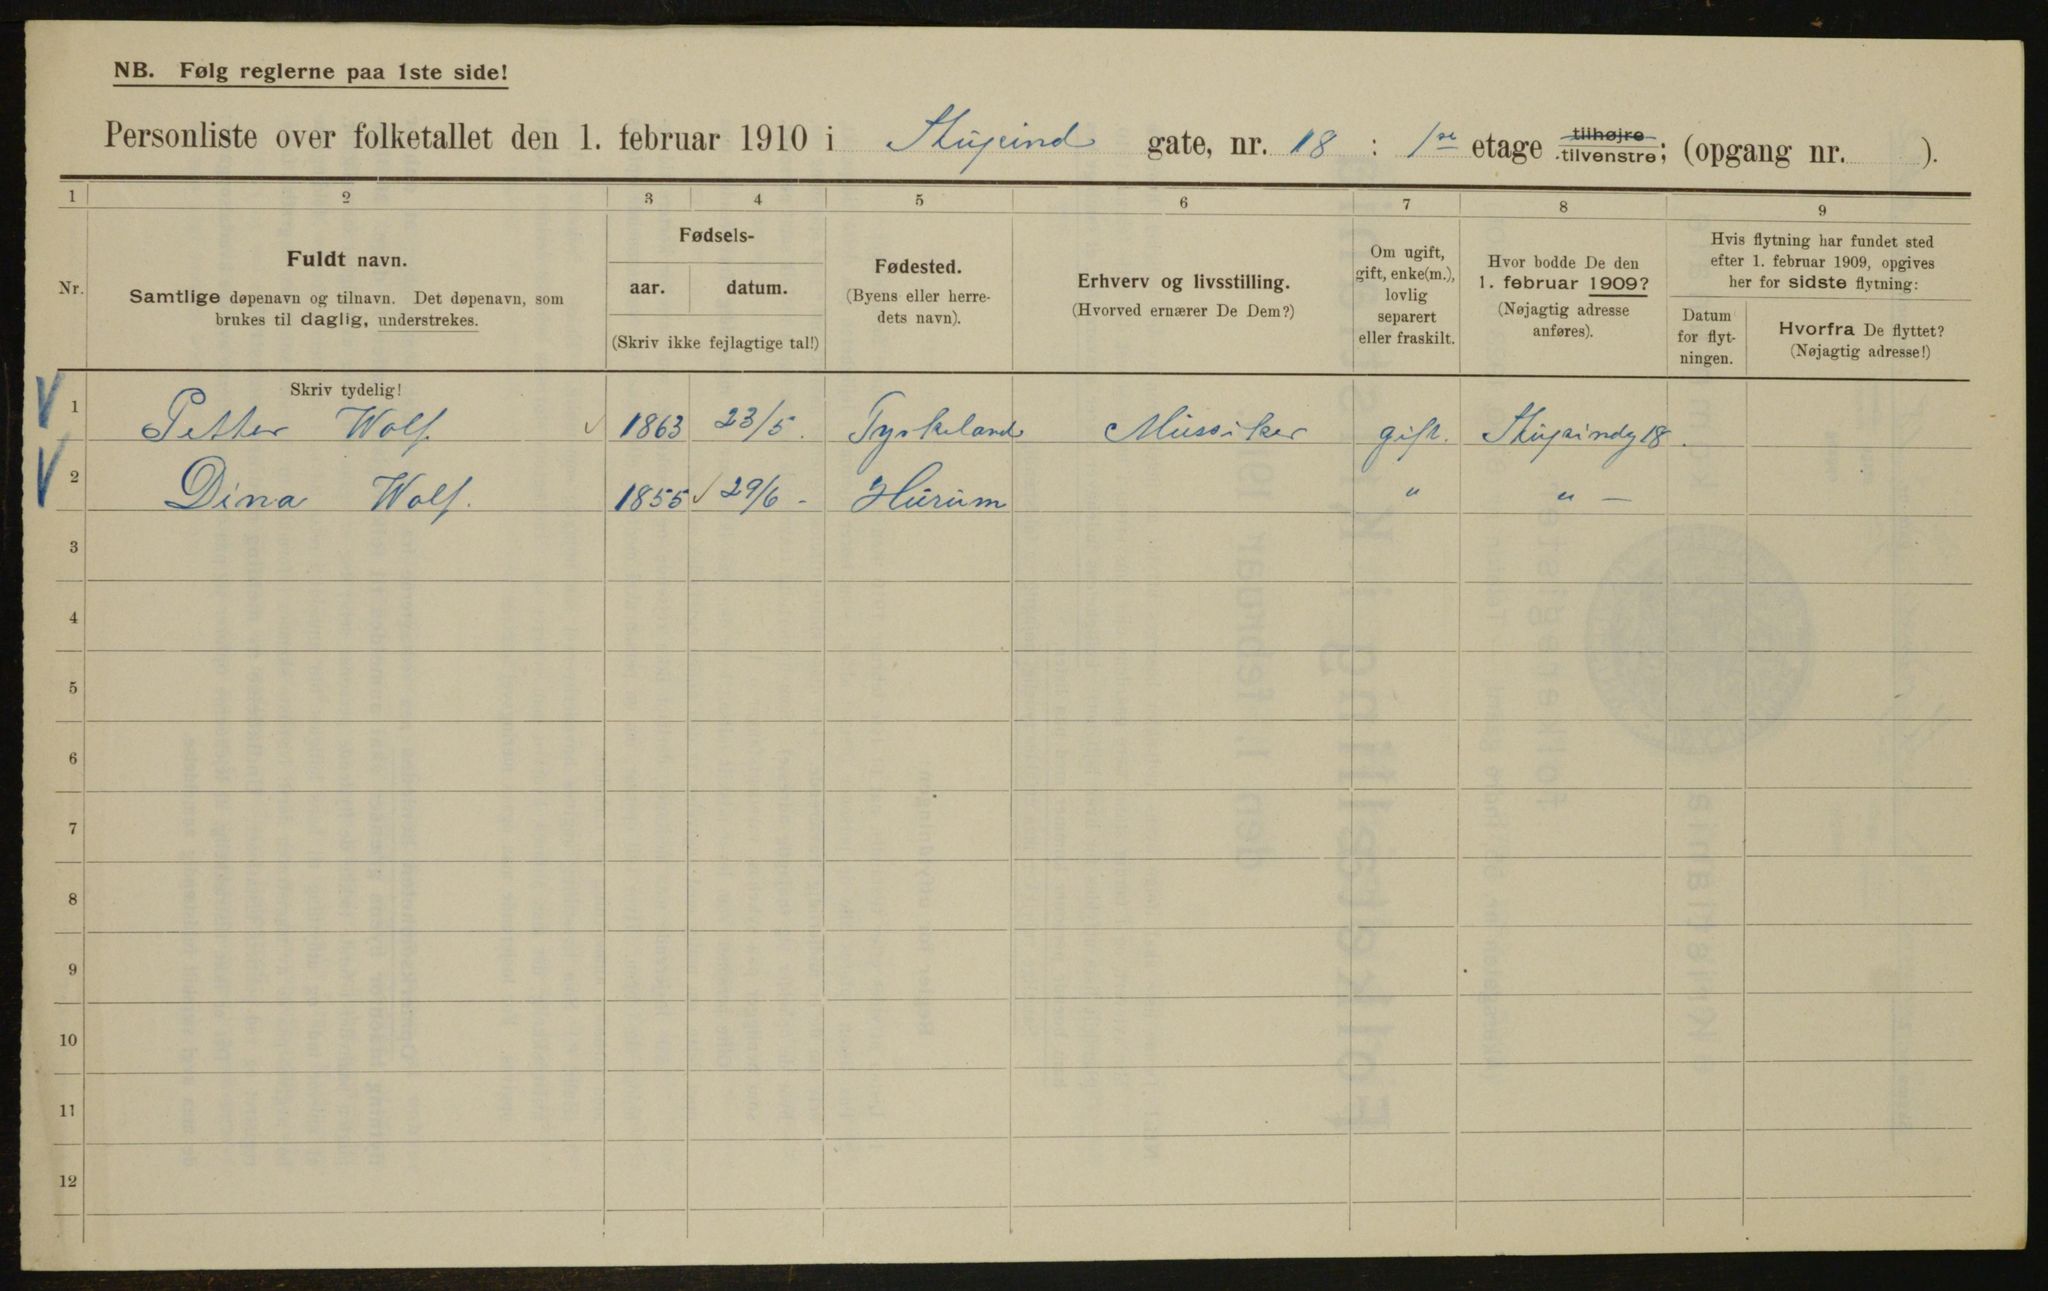 NB. Følg reglerne paa 1ste side!
Personliste over folketallet den 1. februar 1910 i Stupind gate, nr. 18 : 1se etage tilhøjre tilvenstre; (opgang nr. ).
1 2 3 4 5 6 7 8 9
Nr.
Fuldt navn.
Samtlige døpenavn og tilnavn. Det døpenavn, som
brukes til daglig, understrekes.
Fødsels-
aar. datum.
(Skriv ikke fejlagtige tal!)
Fødested.
(Byens eller herre-
dets navn).
Erhverv og livsstilling.
(Hvorved ernærer De Dem?)
Om ugift,
gift, enke(m.),
lovlig
separert
eller fraskilt.
Hvor bodde De den
1. februar 1909?
(Nøjagtig adresse
anføres).
Hvis flytning har fundet sted
efter 1. februar 1909, opgives
her for sidste flytning:
Datum
for flyt-
ningen.
Hvorfra De flyttet?
(Nøjagtig adresse!)
Skriv tydelig!
1 Petter Wolf. 1863 23/5. Tyskeland Mussiker gift. Stupindg 18.
2 Dina Wolf. 1855 29/6 - Hurum " " —
3
4
5
6
7
8
9
10
11
12